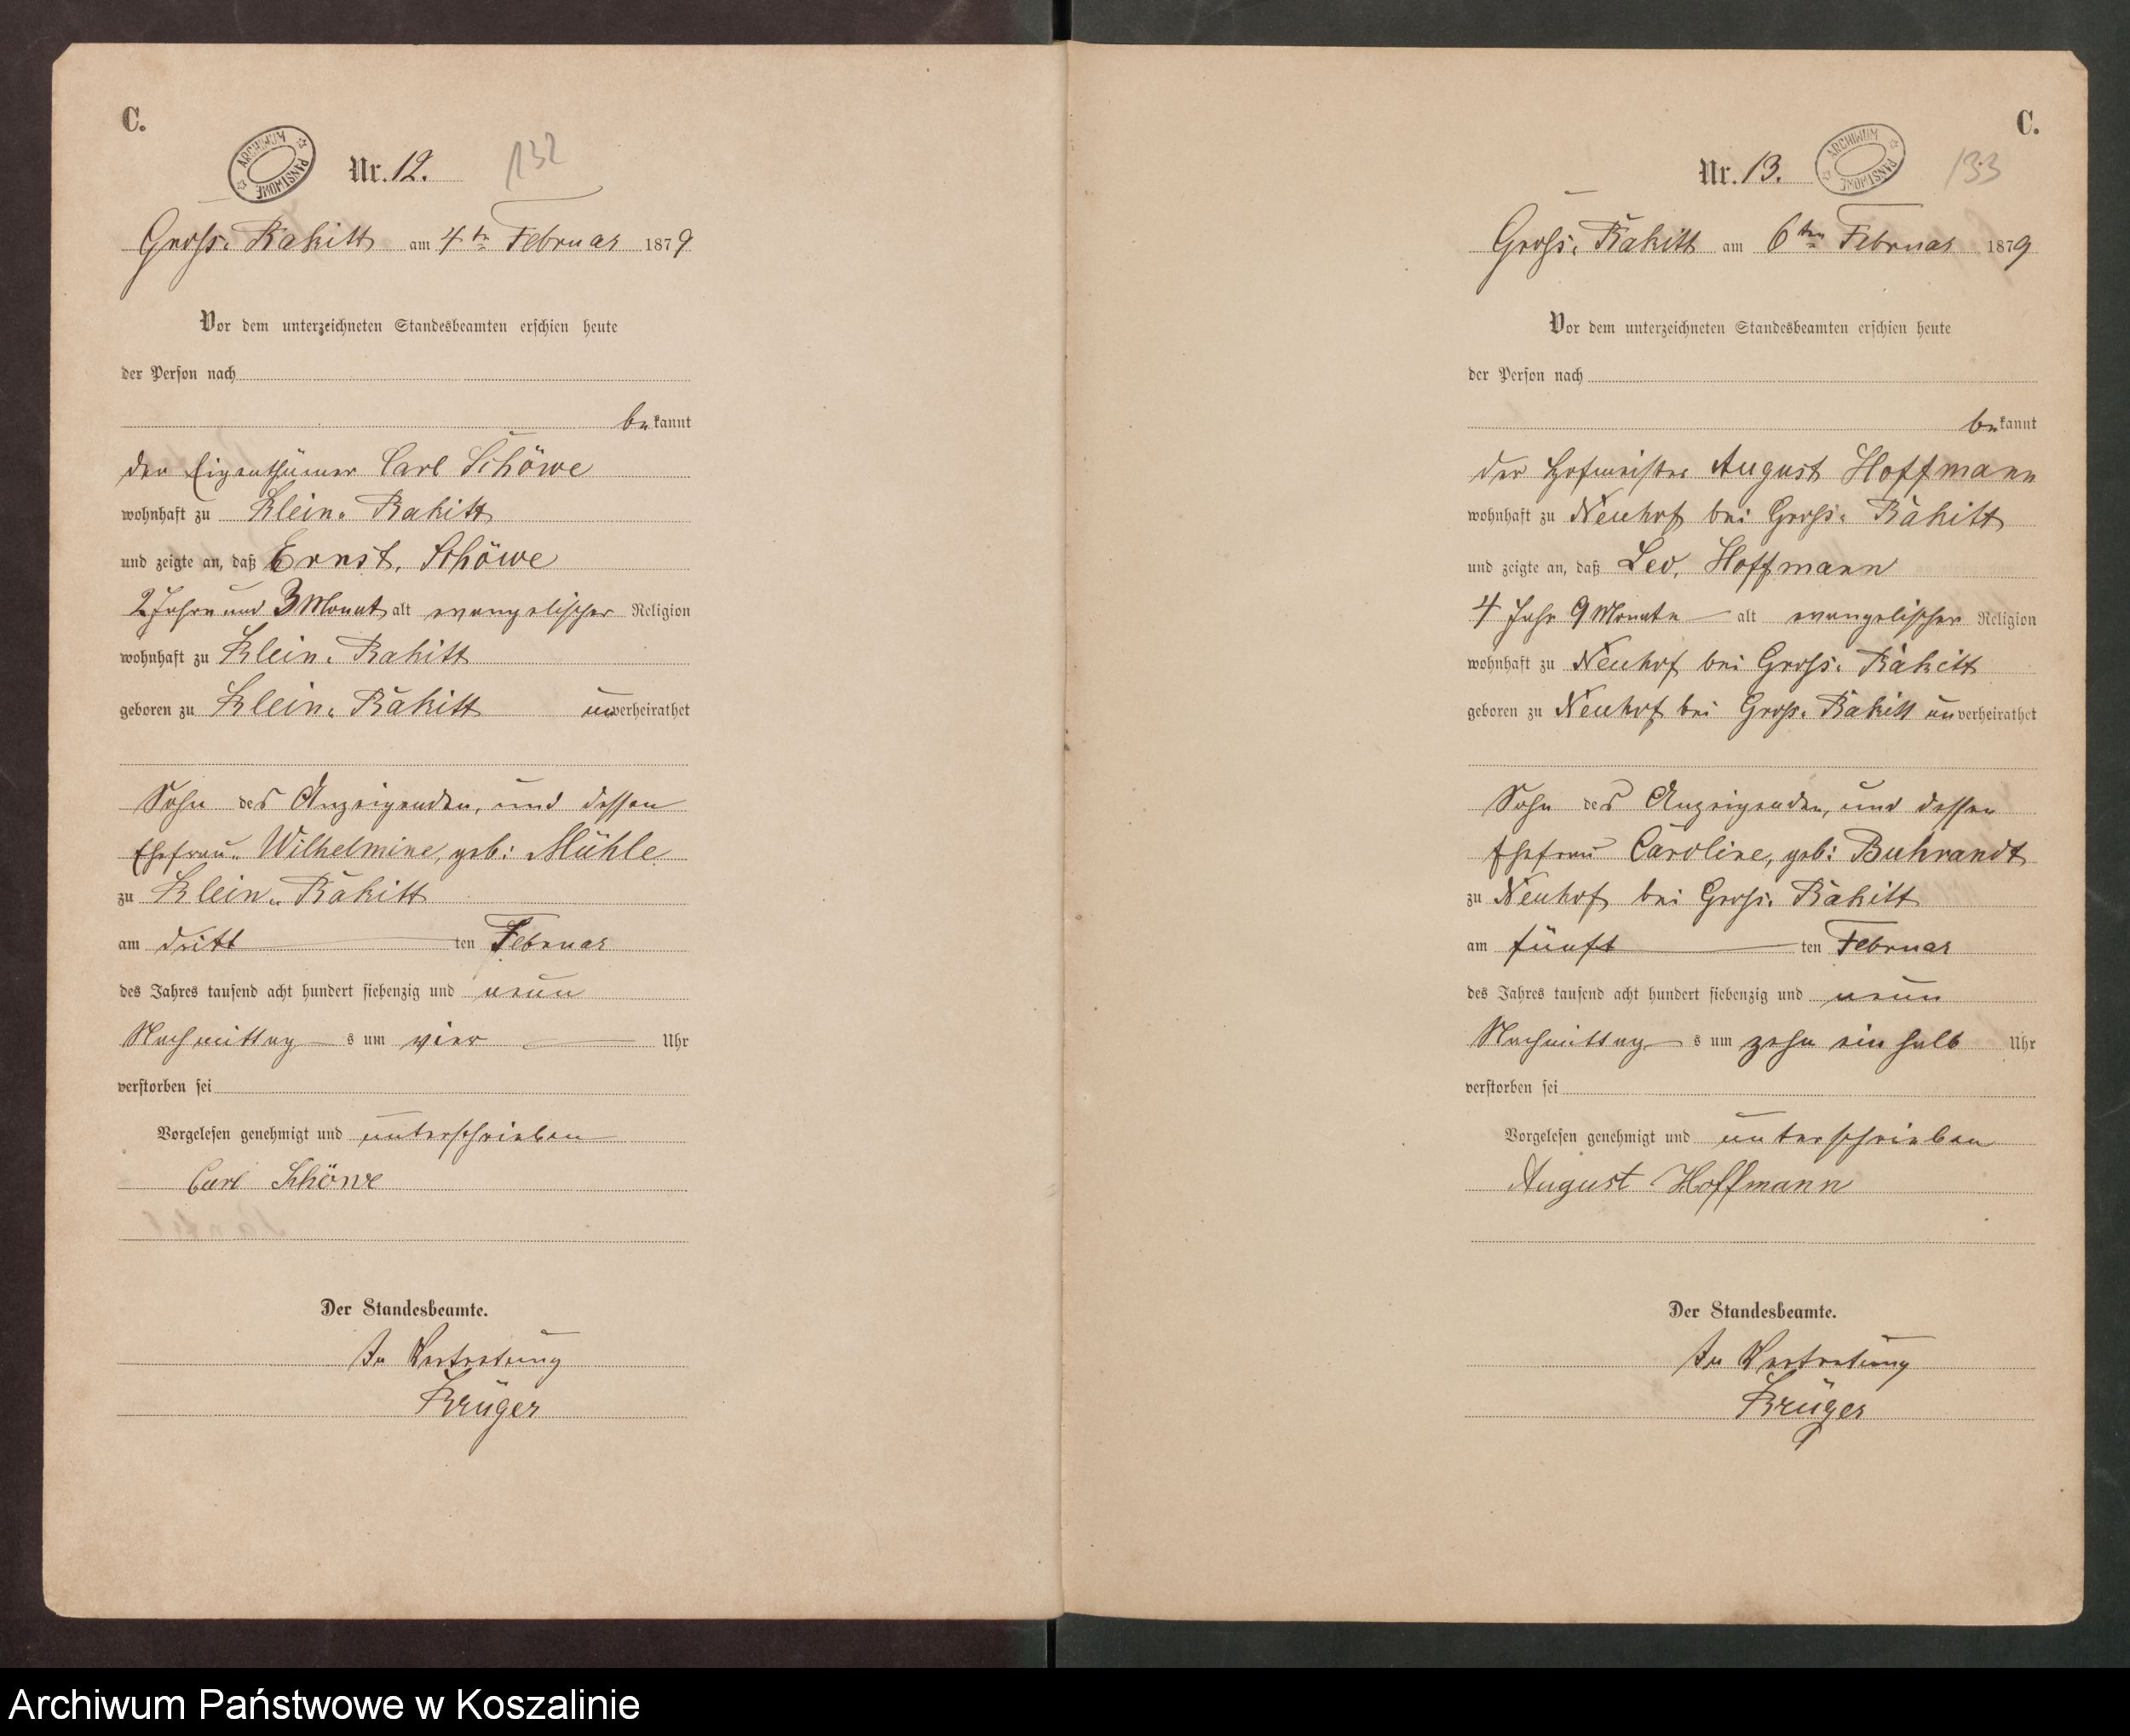 C.
ARCHIWUM PAŃSTWOWE
Nr. 12.
132
Groß. Rakitt am 4ten Februar 1879
Vor dem unterzeichneten Standesbeamten erschien heute
der Person nach
bekannt
der Eigenthümer Carl Schöwe
wohnhaft zu Klein. Rakitt
und zeigte an, daß Ernst. Schöwe
2 Jahre und 3 Monat alt evangelischer Religion
wohnhaft zu Klein. Rakitt
geboren zu Klein. Rakitt unverheirathet
Sohn des Anzeigenden, und dessen
Ehefrau. Wilhelmine, geb: Mühle
zu Klein. Rakitt
am dritt ten Februar
des Jahres tausend acht hundert siebenzig und neun
Nachmittag s um vier Uhr
verstorben sei
Vorgelesen genehmigt und unterschrieben
Carl Schöwe
Der Standesbeamte.
In Vertretung
Krüger
C.
Nr. 13.
ARCHIWUM PAŃSTWOWE
133
Groß. Rakitt am 6ten Februar 1879
Vor dem unterzeichneten Standesbeamten erschien heute
der Person nach
bekannt
der Hofmeister August Hoffmann
wohnhaft zu Neuhof bei Groß. Rakitt
und zeigte an, daß Leo. Hoffmann
4 Jahr 9 Monate alt evangelischer Religion
wohnhaft zu Neuhof bei Groß. Rakitt
geboren zu Neuhof bei Groß. Rakitt unverheirathet
Sohn des Anzeigenden, und dessen
Ehefrau Caroline, geb: Buhrandt
zu Neuhof bei Groß. Rakitt
am fünft ten Februar
des Jahres tausend acht hundert siebenzig und neun
Nachmittag s um zehn ein halb Uhr
verstorben sei
Vorgelesen genehmigt und unterschrieben
August Hoffmann
Der Standesbeamte.
In Vertretung
Krüger
Archiwum Państwowe w Koszalinie